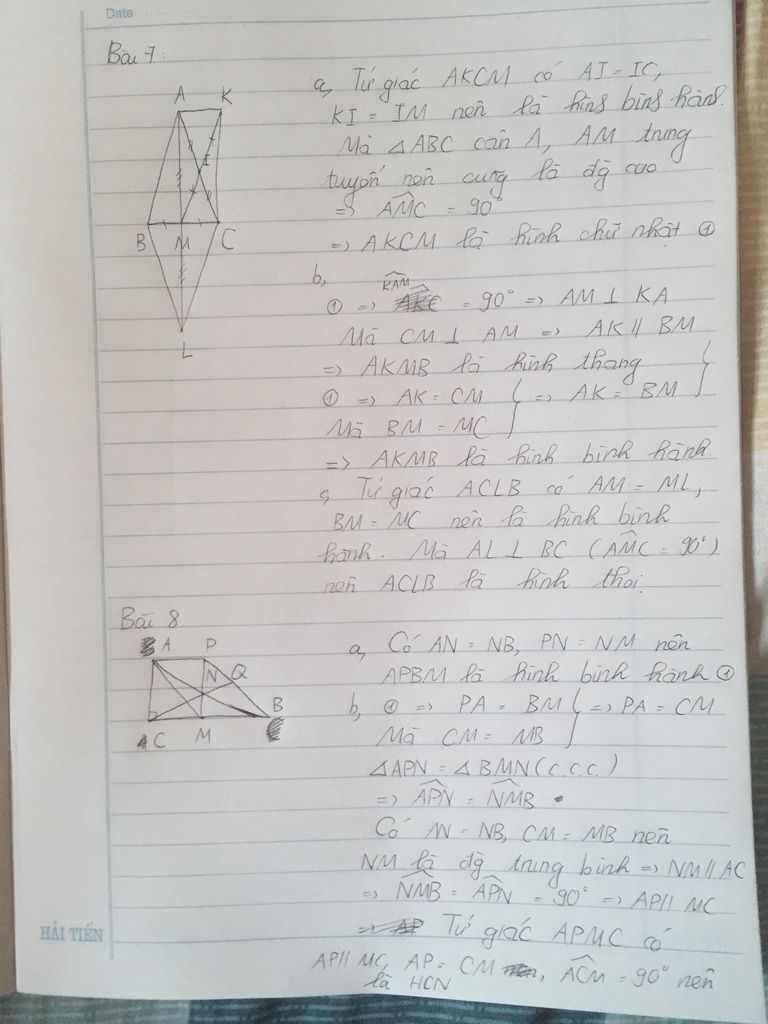 Date
Bài 7:
A K
I
B M C
L
a, Tứ giác AKCM có AI = IC,
KI = IM nên là hình bình hành.
Mà △ABC cân A, AM trung
tuyến nên cũng là đg cao
=> AMC = 90°
=> AKCM là hình chữ nhật ①
b,
KAM
① => = 90° => AM ⊥ KA
Mà CM ⊥ AM => AK // BM
=> AKMB là hình thang
① => AK = CM } => AK = BM }
Mà BM = MC
=> AKMB là hình bình hành
c, Tứ giác ACLB có AM = ML,
BM = MC nên là hình bình
hành. Mà AL ⊥ BC (AMC = 90°)
nên ACLB là hình thoi.
Bài 8
A P
N Q
B
C M
a, Có AN = NB, PN = NM nên
APBM là hình bình hành ①
b, ① => PA = BM } => PA = CM
Mà CM = MB
△APN = △BMN (c.c.c.)
=> APN = NMB
Có AN = NB, CM = MB nên
NM là đg trung bình => NM // AC
=> NMB = APN = 90° => AP // MC
Tứ giác APMC có
AP // MC, AP = CM, ACM = 90° nên
là HCN
HẢI TIẾN